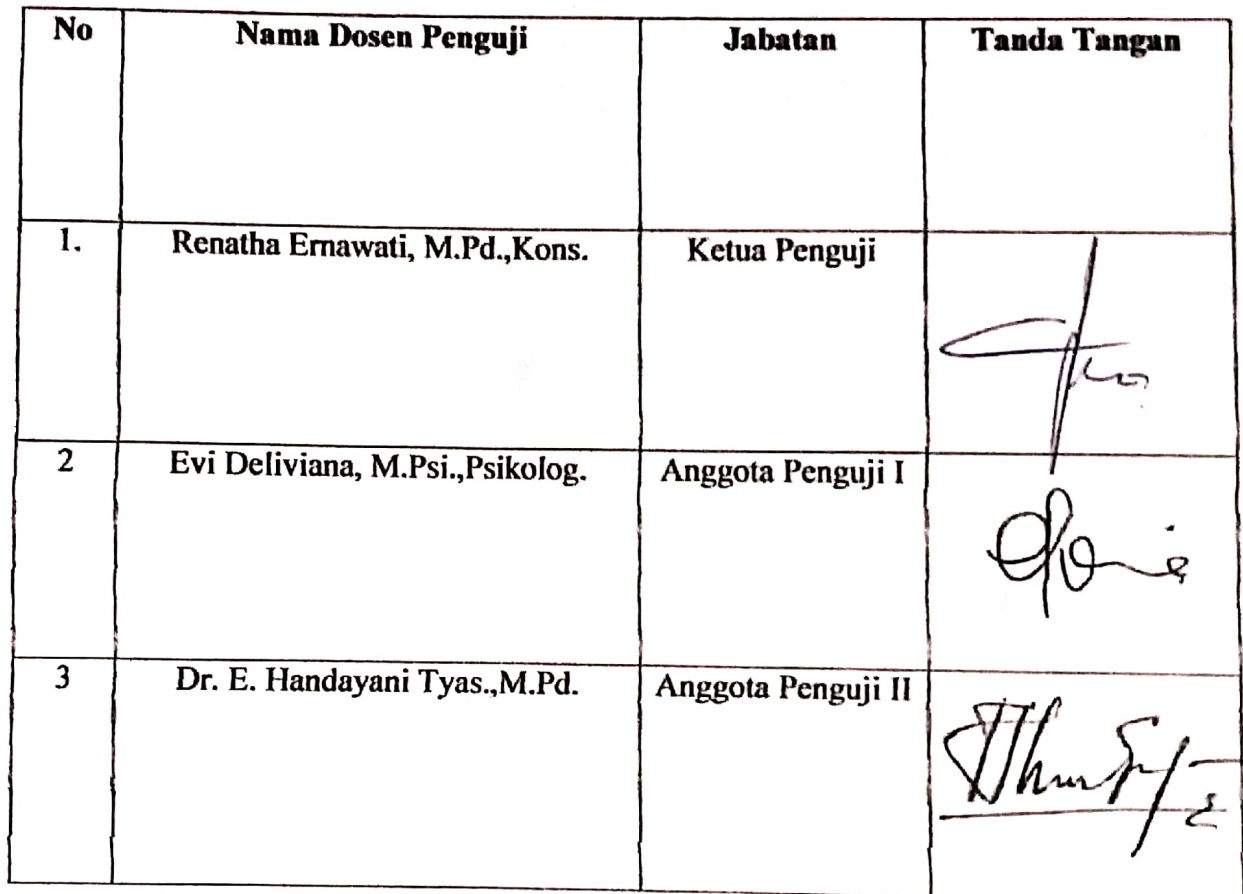 No Nama Dosen Penguji Jabatan Tanda Tangan
1. Renatha Ernawati, M.Pd.,Kons. Ketua Penguji
2 Evi Deliviana, M.Psi.,Psikolog. Anggota Penguji I
3 Dr. E. Handayani Tyas.,M.Pd. Anggota Penguji II